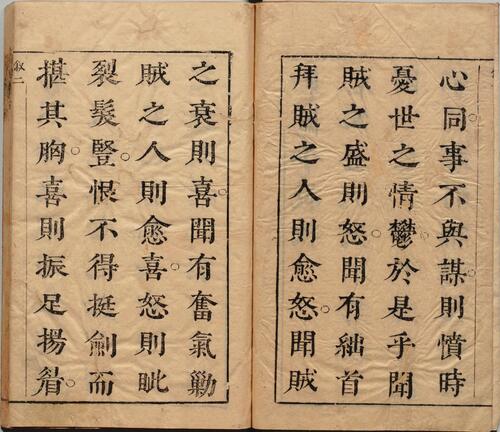 心同事不與謀則憤時
憂世之情鬱於是乎聞
賊之盛則怒聞有絀首
拜賊之人則愈怒聞賊
之衰則喜聞有奮氣勦
賊之人則愈喜怒則眦
裂髮豎恨不得挺劍而
揕其胸喜則振足揚眉
叙二